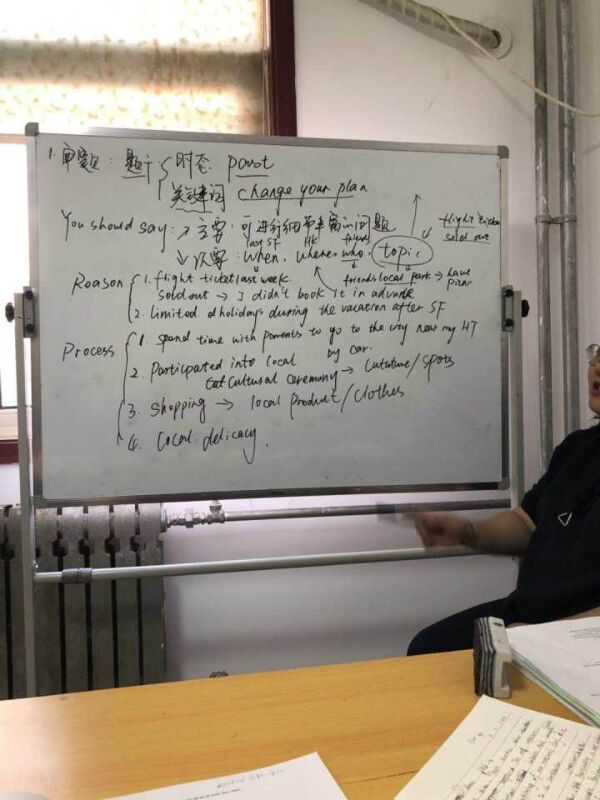 1. 审题: 题干 时态 past
关键词 change your plan
You should say: → 主要: 可进行细节丰富的问题
flight ticket
sold out
last SF HK friends
↓ 次要: when, where, who. topic
Reason 1. flight ticket last week friends local park → have
sold out → I didn't book it in advance
2. limited holidays during the vacation after SF
Process 1. spend time with parents to go to the city near my HT
by car.
2. Participated into local
Cultural ceremony → /spots
3. shopping → local product/clothes
4. local delicacy.